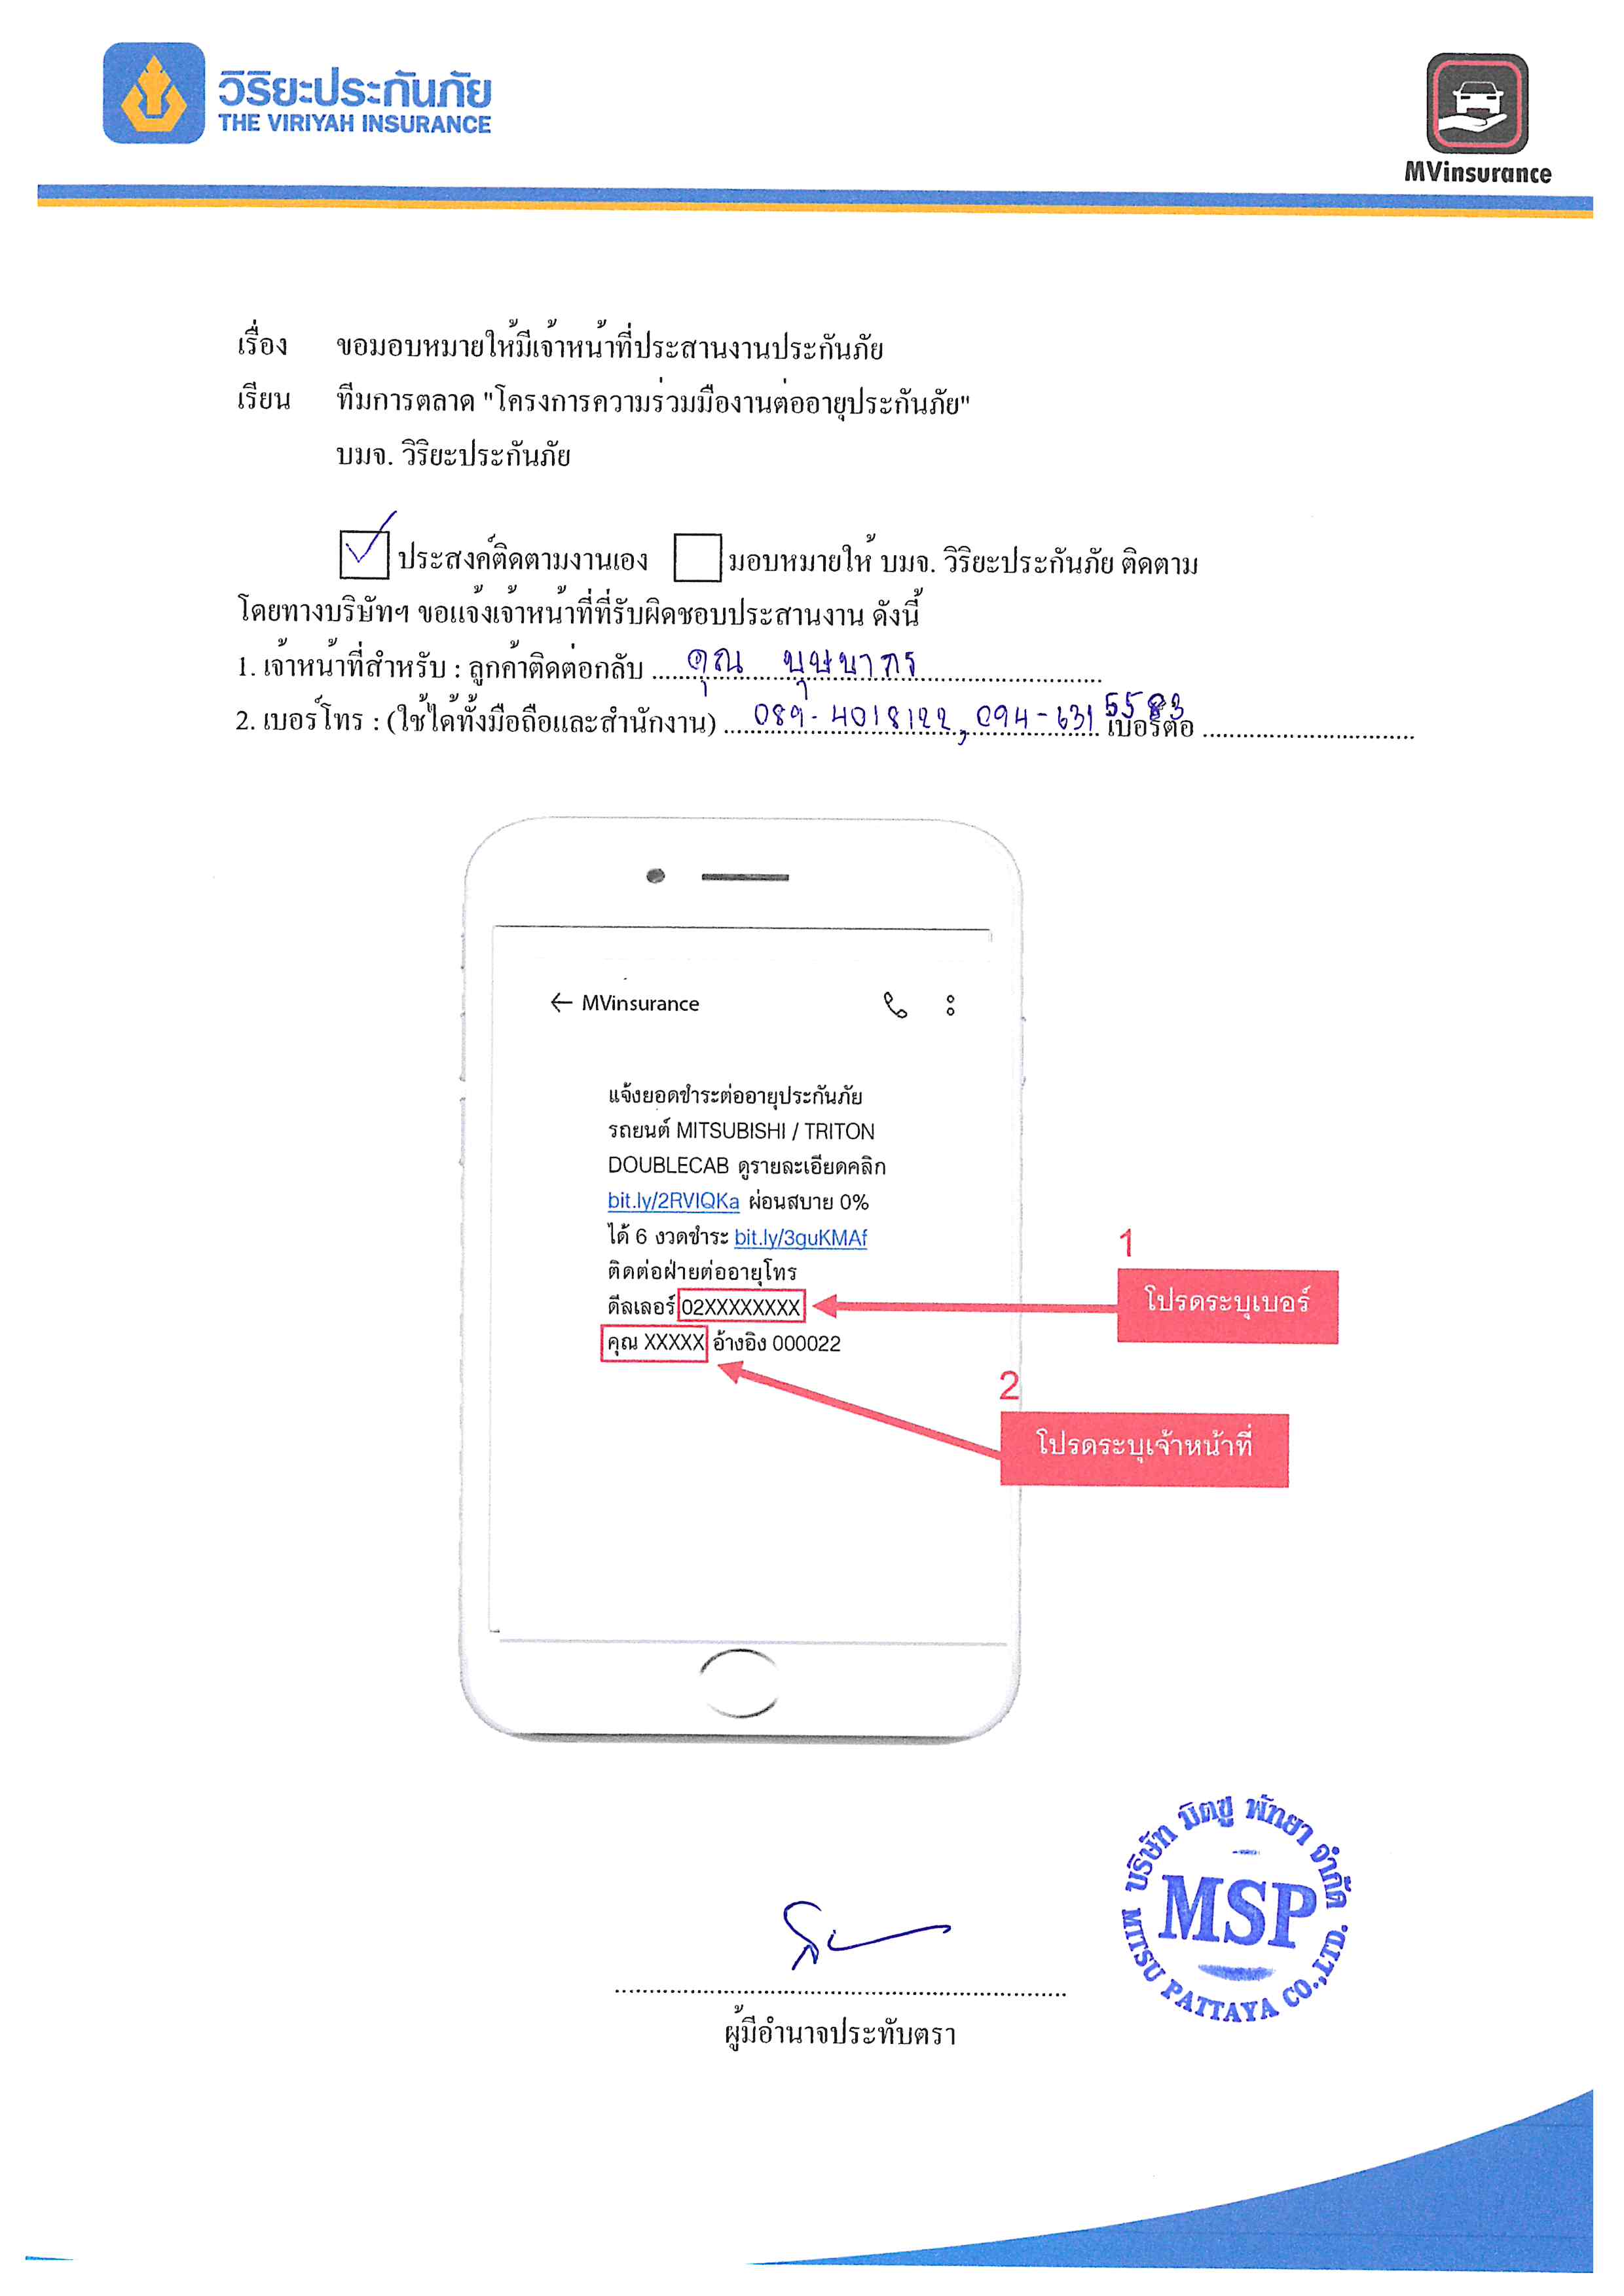 วิริยะประกันภัย
THE VIRIYAH INSURANCE
MVinsurance
เรื่อง ขอมอบหมายให้มีเจ้าหน้าที่ประสานงานประกันภัย
เรียน ทีมการตลาด "โครงการความร่วมมืองานต่ออายุประกันภัย"
บมจ. วิริยะประกันภัย
ประสงค์ติดตามงานเอง มอบหมายให้ บมจ. วิริยะประกันภัย ติดตาม
โดยทางบริษัทฯ ขอแจ้งเจ้าหน้าที่ที่รับผิดชอบประสานงาน ดังนี้
1. เจ้าหน้าที่สำหรับ : ลูกค้าติดต่อกลับ คุณ บุษบากร
2. เบอร์โทร : (ใช้ได้ทั้งมือถือและสำนักงาน) 089-4018122, 094-6315583 เบอร์ต่อ
← MVinsurance
แจ้งยอดชำระต่ออายุประกันภัย
รถยนต์ MITSUBISHI / TRITON
DOUBLECAB ดูรายละเอียดคลิก
bit.ly/2RVIQKa ผ่อนสบาย 0%
ได้ 6 งวดชำระ bit.ly/3guKMAf
ติดต่อฝ่ายต่ออายุโทร
ดีลเลอร์ 02XXXXXXXX
คุณ XXXXX อ้างอิง 000022
1
โปรดระบุเบอร์
2
โปรดระบุเจ้าหน้าที่
บริษัท มิตซู พัทยา จำกัด
MSP
MITSU PATTAYA CO.,LTD.
ผู้มีอำนาจประทับตรา